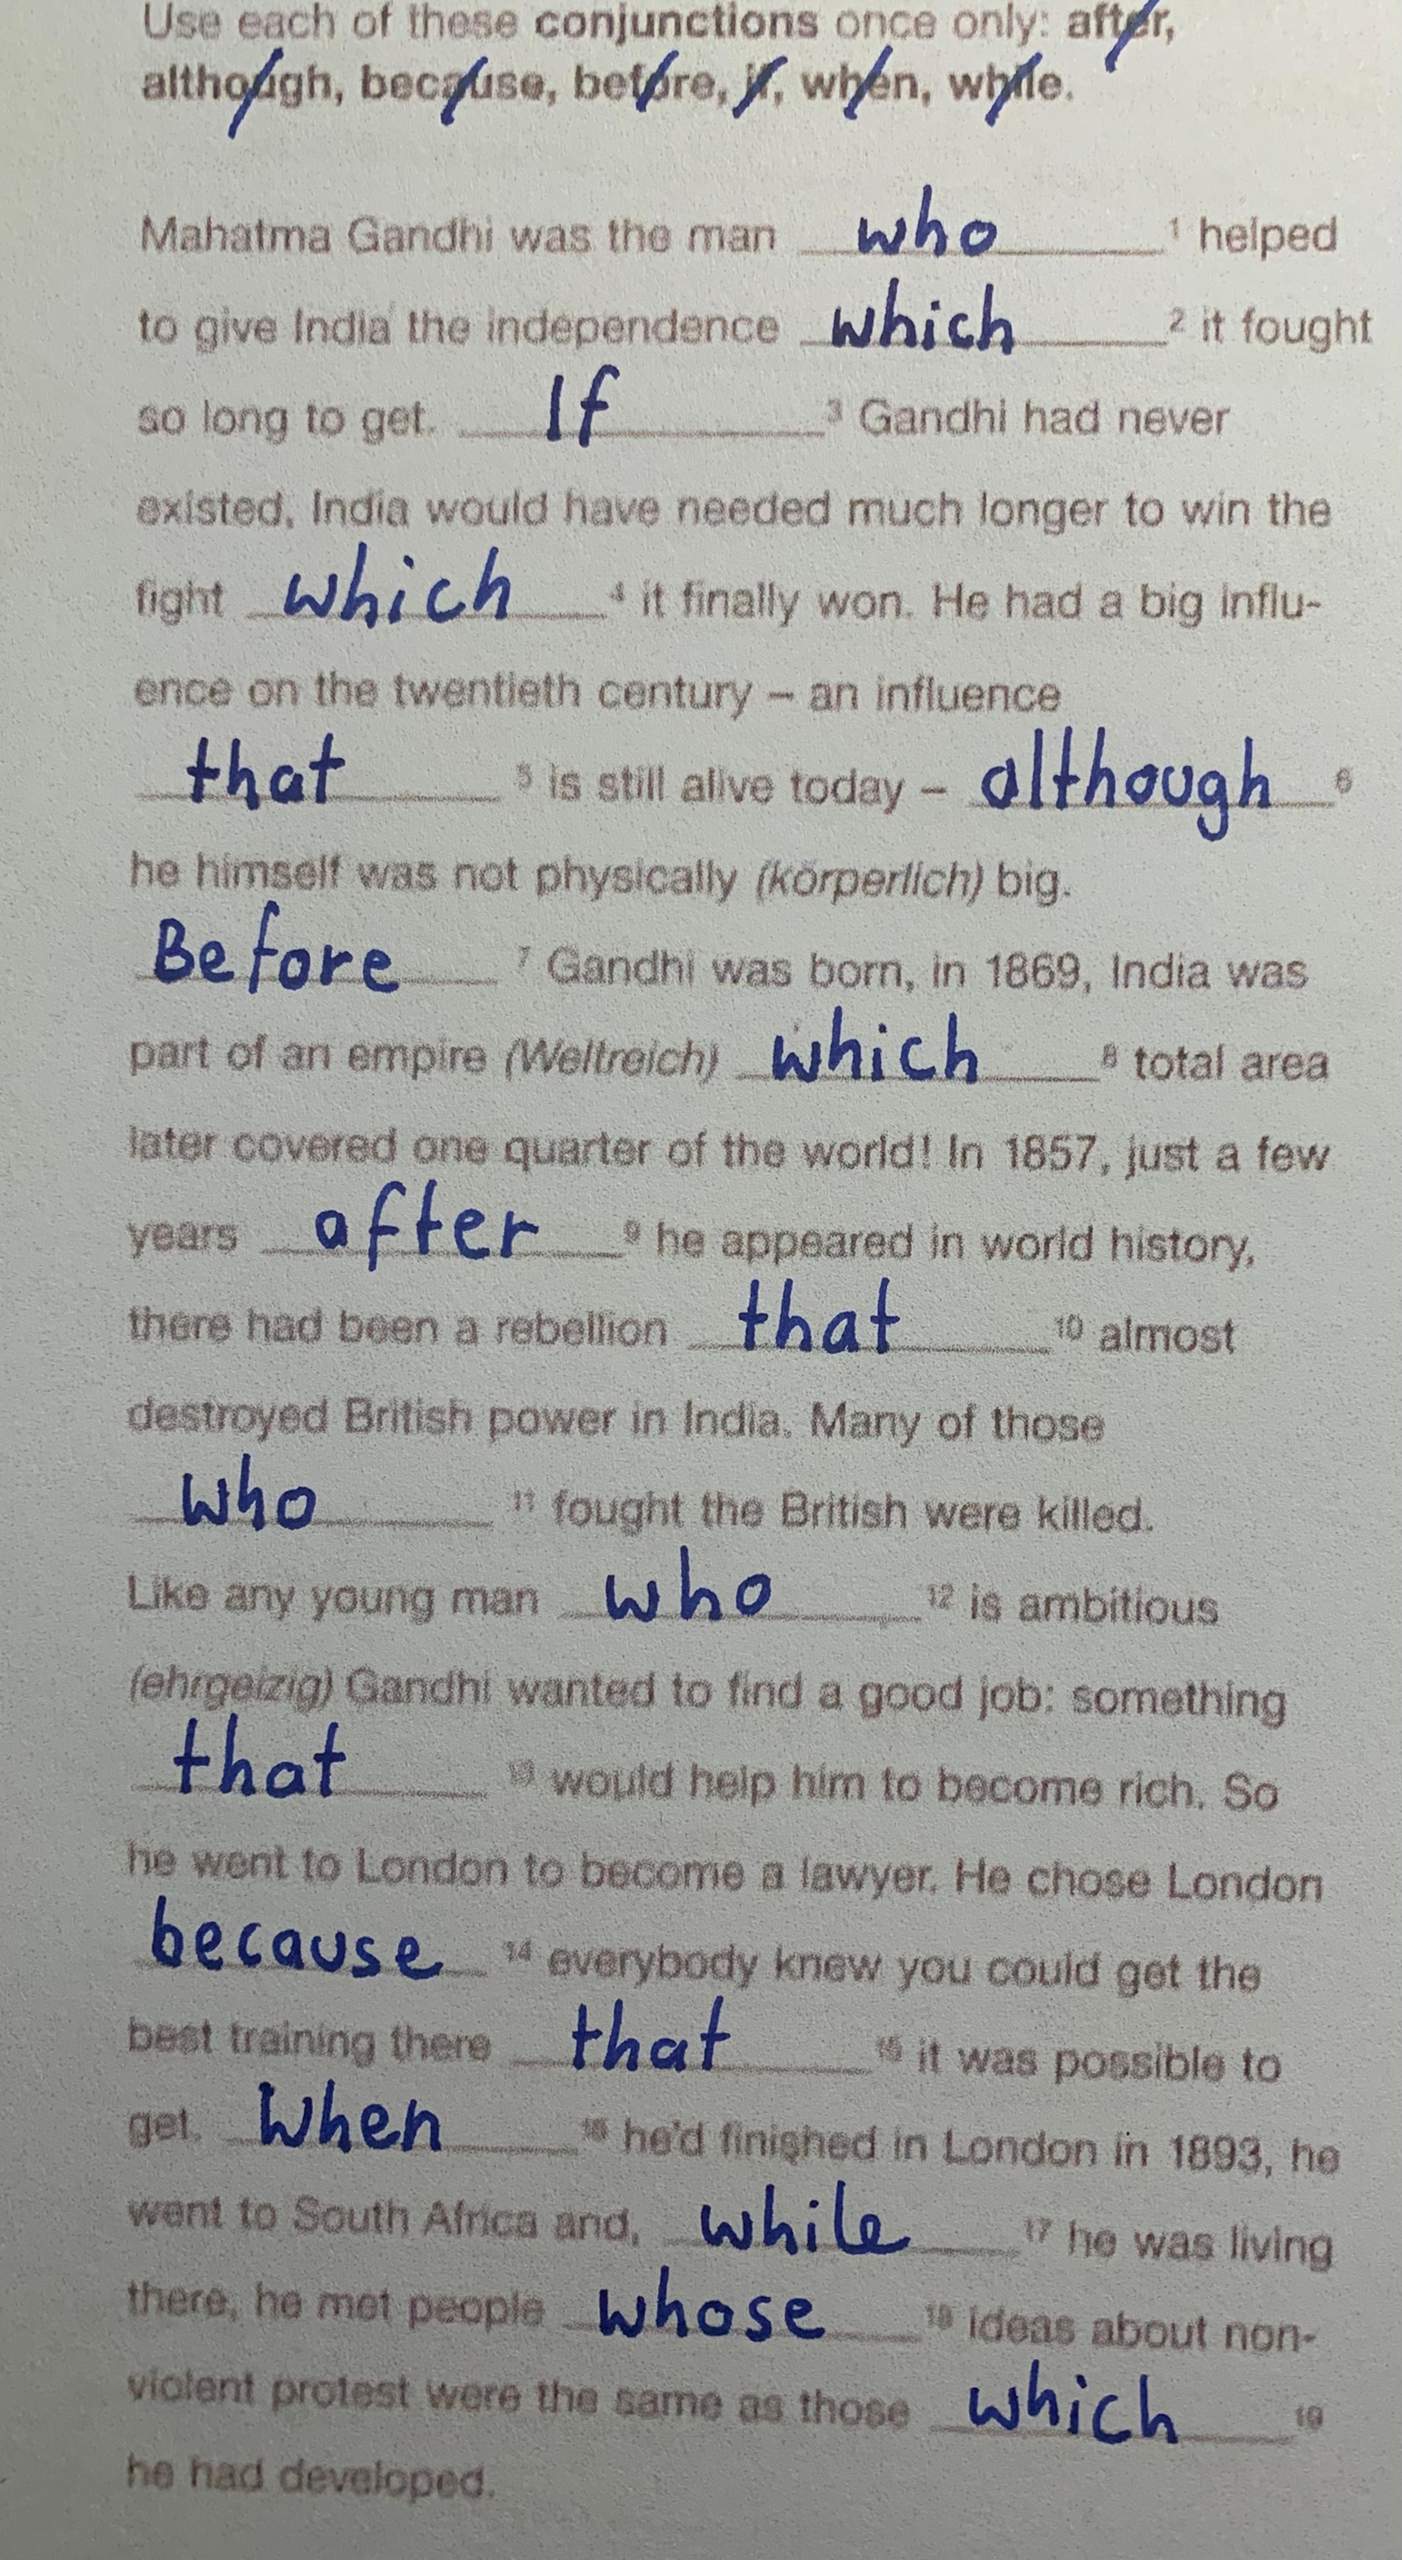 Use each of these conjunctions once only: after,
although, because, before, if, when, while.
Mahatma Gandhi was the man who 1 helped
to give India the independence which 2 it fought
so long to get. If 3 Gandhi had never
existed, India would have needed much longer to win the
fight which 4 it finally won. He had a big influ-
ence on the twentieth century – an influence
that 5 is still alive today – although 6
he himself was not physically (körperlich) big.
Before 7 Gandhi was born, in 1869, India was
part of an empire (Weltreich) which 8 total area
later covered one quarter of the world! In 1857, just a few
years after 9 he appeared in world history,
there had been a rebellion that 10 almost
destroyed British power in India. Many of those
who 11 fought the British were killed.
Like any young man who 12 is ambitious
(ehrgeizig) Gandhi wanted to find a good job: something
that 13 would help him to become rich. So
he went to London to become a lawyer. He chose London
because 14 everybody knew you could get the
best training there that 15 it was possible to
get. When 16 he'd finished in London in 1893, he
went to South Africa and, while 17 he was living
there, he met people whose 18 ideas about non-
violent protest were the same as those which 19
he had developed.